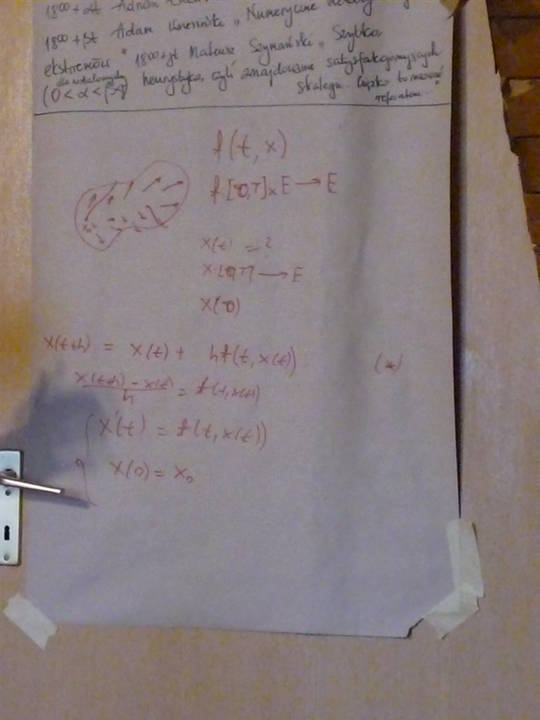 18⁰⁰ + αt Adrian
18⁰⁰ + βt Adam "Numeryczne
ekstremów" 18⁰⁰ + γt Mateusz Szymański "Szybka
heurystyka, czyli znajdowanie satysfakcjonujących
(0 < α < β < γ)
f(t, x)
f: [0,T] × E → E
x(t) = ?
x: [0,T] → E
x(0)
x(t+h) = x(t) + hf(t, x(t)) (*)
x(t+h) - x(t) / h = f(t, x(t))
x'(t) = f(t, x(t))
x(0) = x₀